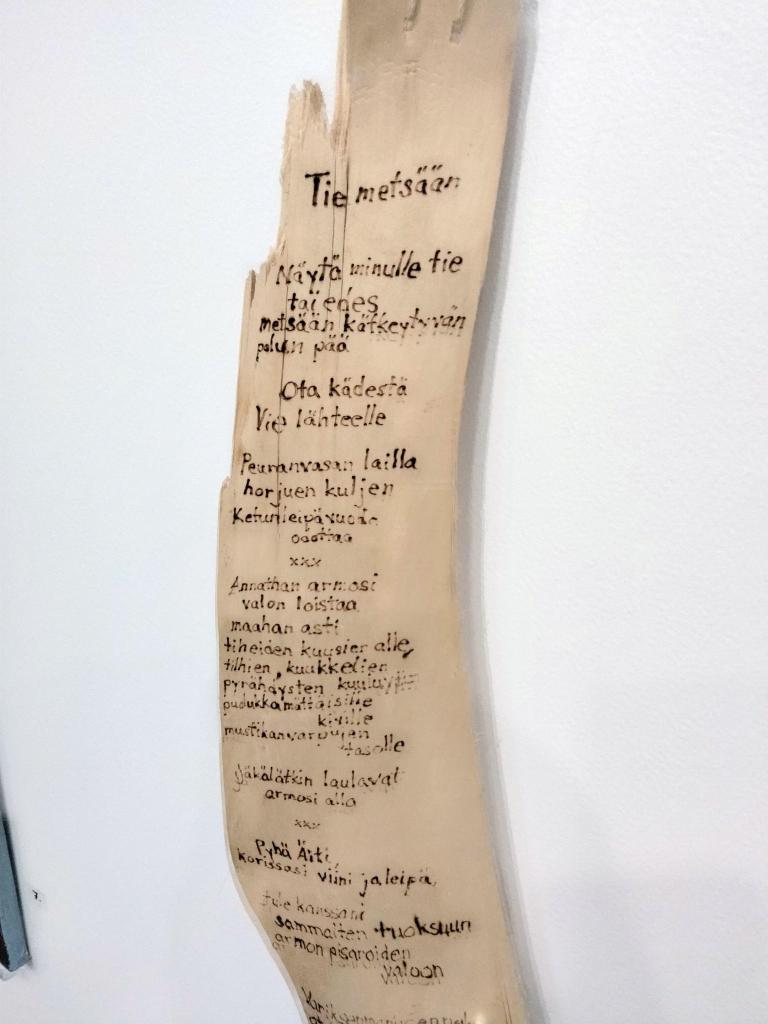 Tie metsään
Näytä minulle tie
tai edes
metsään kätkeytyvän
polun pää
Ota kädestä
Vie lähteelle
Peuranvasan lailla
horjuen kuljen
Ketunleipävuode
odottaa
xxx
Annathan armosi
valon loistaa
maahan asti
tiheiden kuusien alle,
tilhien, kuukkelien
pyrähdysten kuuluviin
pudukkamättäisille
kiville
mustikanvarpujen
tasolle
Jäkälätkin laulavat
armosi alla
xxx
Pyhä Äiti,
korissasi viini ja leipä,
tule kanssani
sammalten tuoksuun
armon pisaroiden
valoon